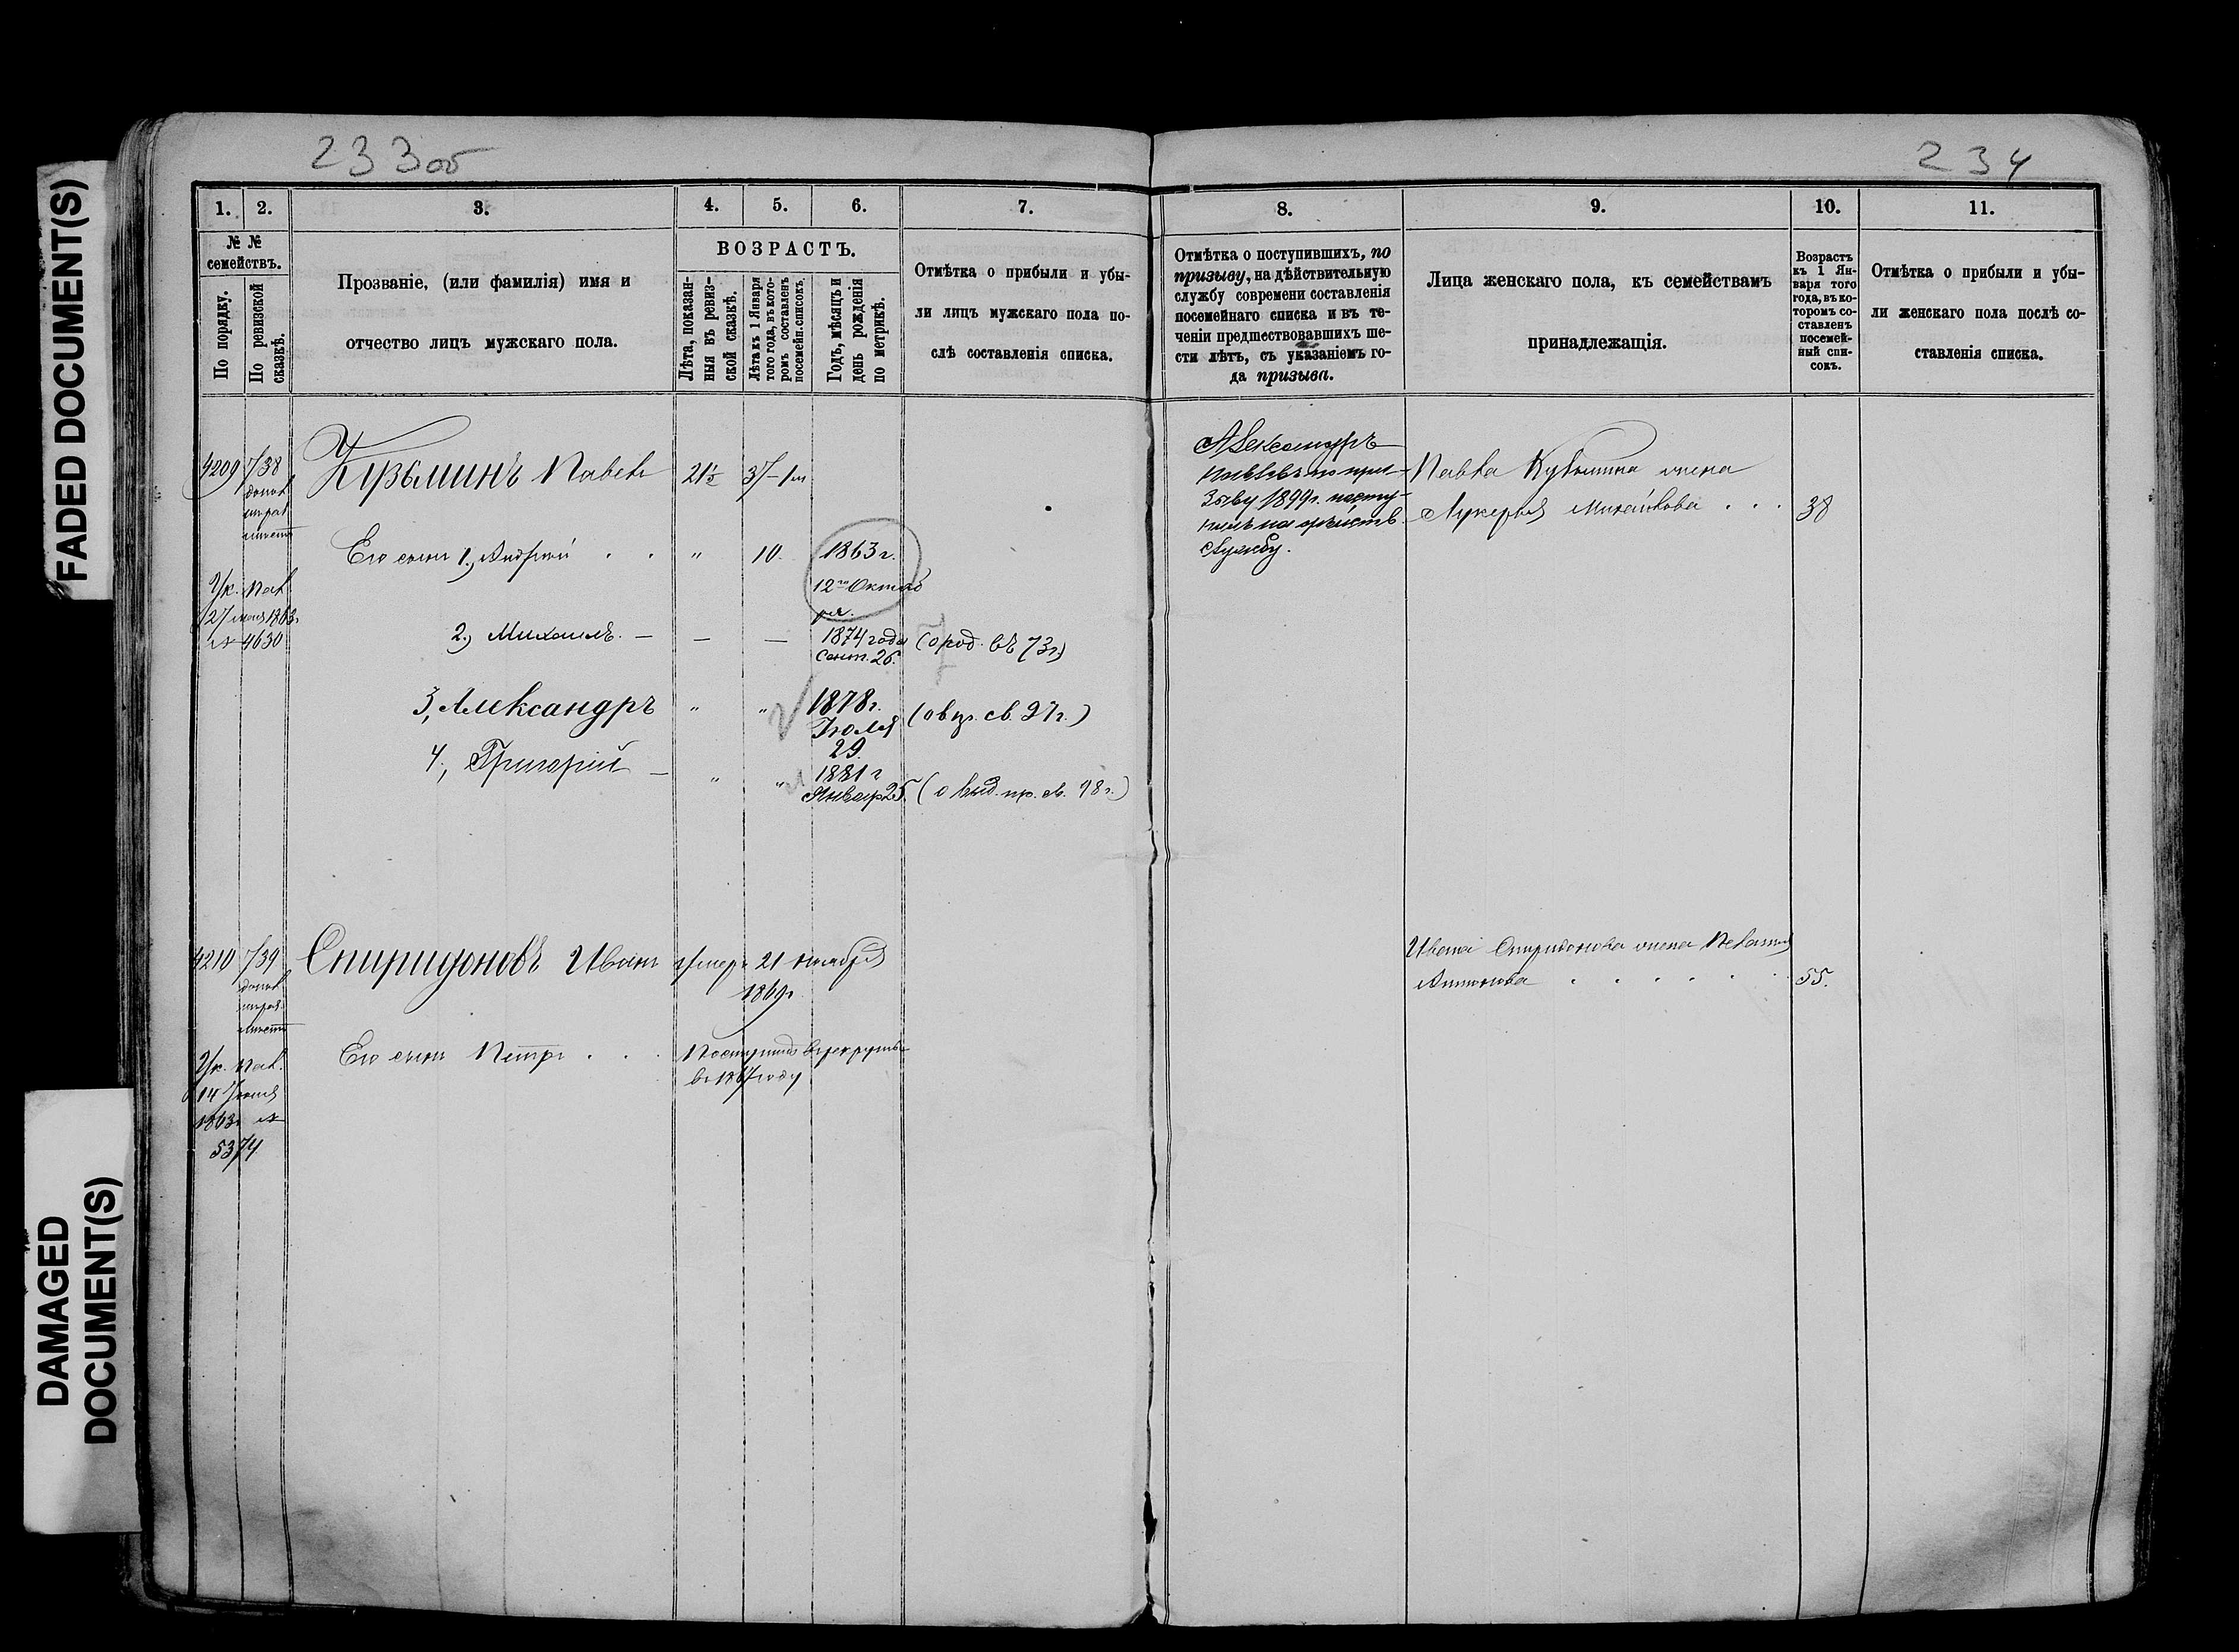 FADED DOCUMENT(S)
DAMAGED
DOCUMENT(S)
233об
1.
2.
3.
4.
5.
6.
7.
№ №
семействъ.
По порядку.
По ревизской
сказкѣ.
Прозваніе, (или фамилія) имя и
отчество лицъ мужскаго пола.
ВОЗРАСТЪ.
Лѣта, показан-
ныя въ ревиз-
ской сказкѣ.
Лѣта къ 1 Января
того года, въ кото-
ромъ составленъ
посемейн. списокъ.
Годъ, мѣсяцъ и
день рожденія
по метрикѣ.
Отмѣтка о прибыли и убы-
ли лицъ мужскаго пола по-
слѣ составленія списка.
4209 738 Кузьминъ Павелъ 21½ 37-1м
Ук. Пал.
27 мая 1863г.
№ 4630
Его сынъ 1, Андрей . . " 10. 1863 г.
12го Октяб
ря.
2, Михаилъ. — — — 1874 года (о род. въ 73г.)
Сент. 26.
3, Александръ " " 1878 г. (о в св. 97 г.)
Іюля
29.
4., Григорій — " " 1881 г
Января 25. (о выд. пр. св. 98 г.)
4210 739 Спиридоновъ Иванъ Умеръ 21 ноября
1869г.
Его сынъ Петръ . . . Поступилъ въ рекруты
въ 1867 году
Ук. Пал.
14 Іюня
1863г №
5374
234
8.
9.
10.
11.
Отмѣтка о поступившихъ, по
призыву, на дѣйствительную
службу современи составленія
посемейнаго списка и въ те-
ченіи предшествовавшихъ ше-
сти лѣтъ, съ указаніемъ го-
да призыва.
Лица женскаго пола, къ семействамъ
принадлежащія.
Возрастъ
къ 1 Ян-
варя того
года, въ ко-
торомъ со-
ставленъ
посемей-
ный спи-
сокъ.
Отмѣтка о прибыли и убы-
ли женскаго пола послѣ со-
ставленія списка.
Александръ
Павловъ по при-
зыву 1899г. посту-
пилъ на дѣйств.
службу.
Павла Кузьмина жена
Лукерья Михайлова . . . 38
Ивана Спиридонова жена Пелагея
Антонова . . . . . . 55.